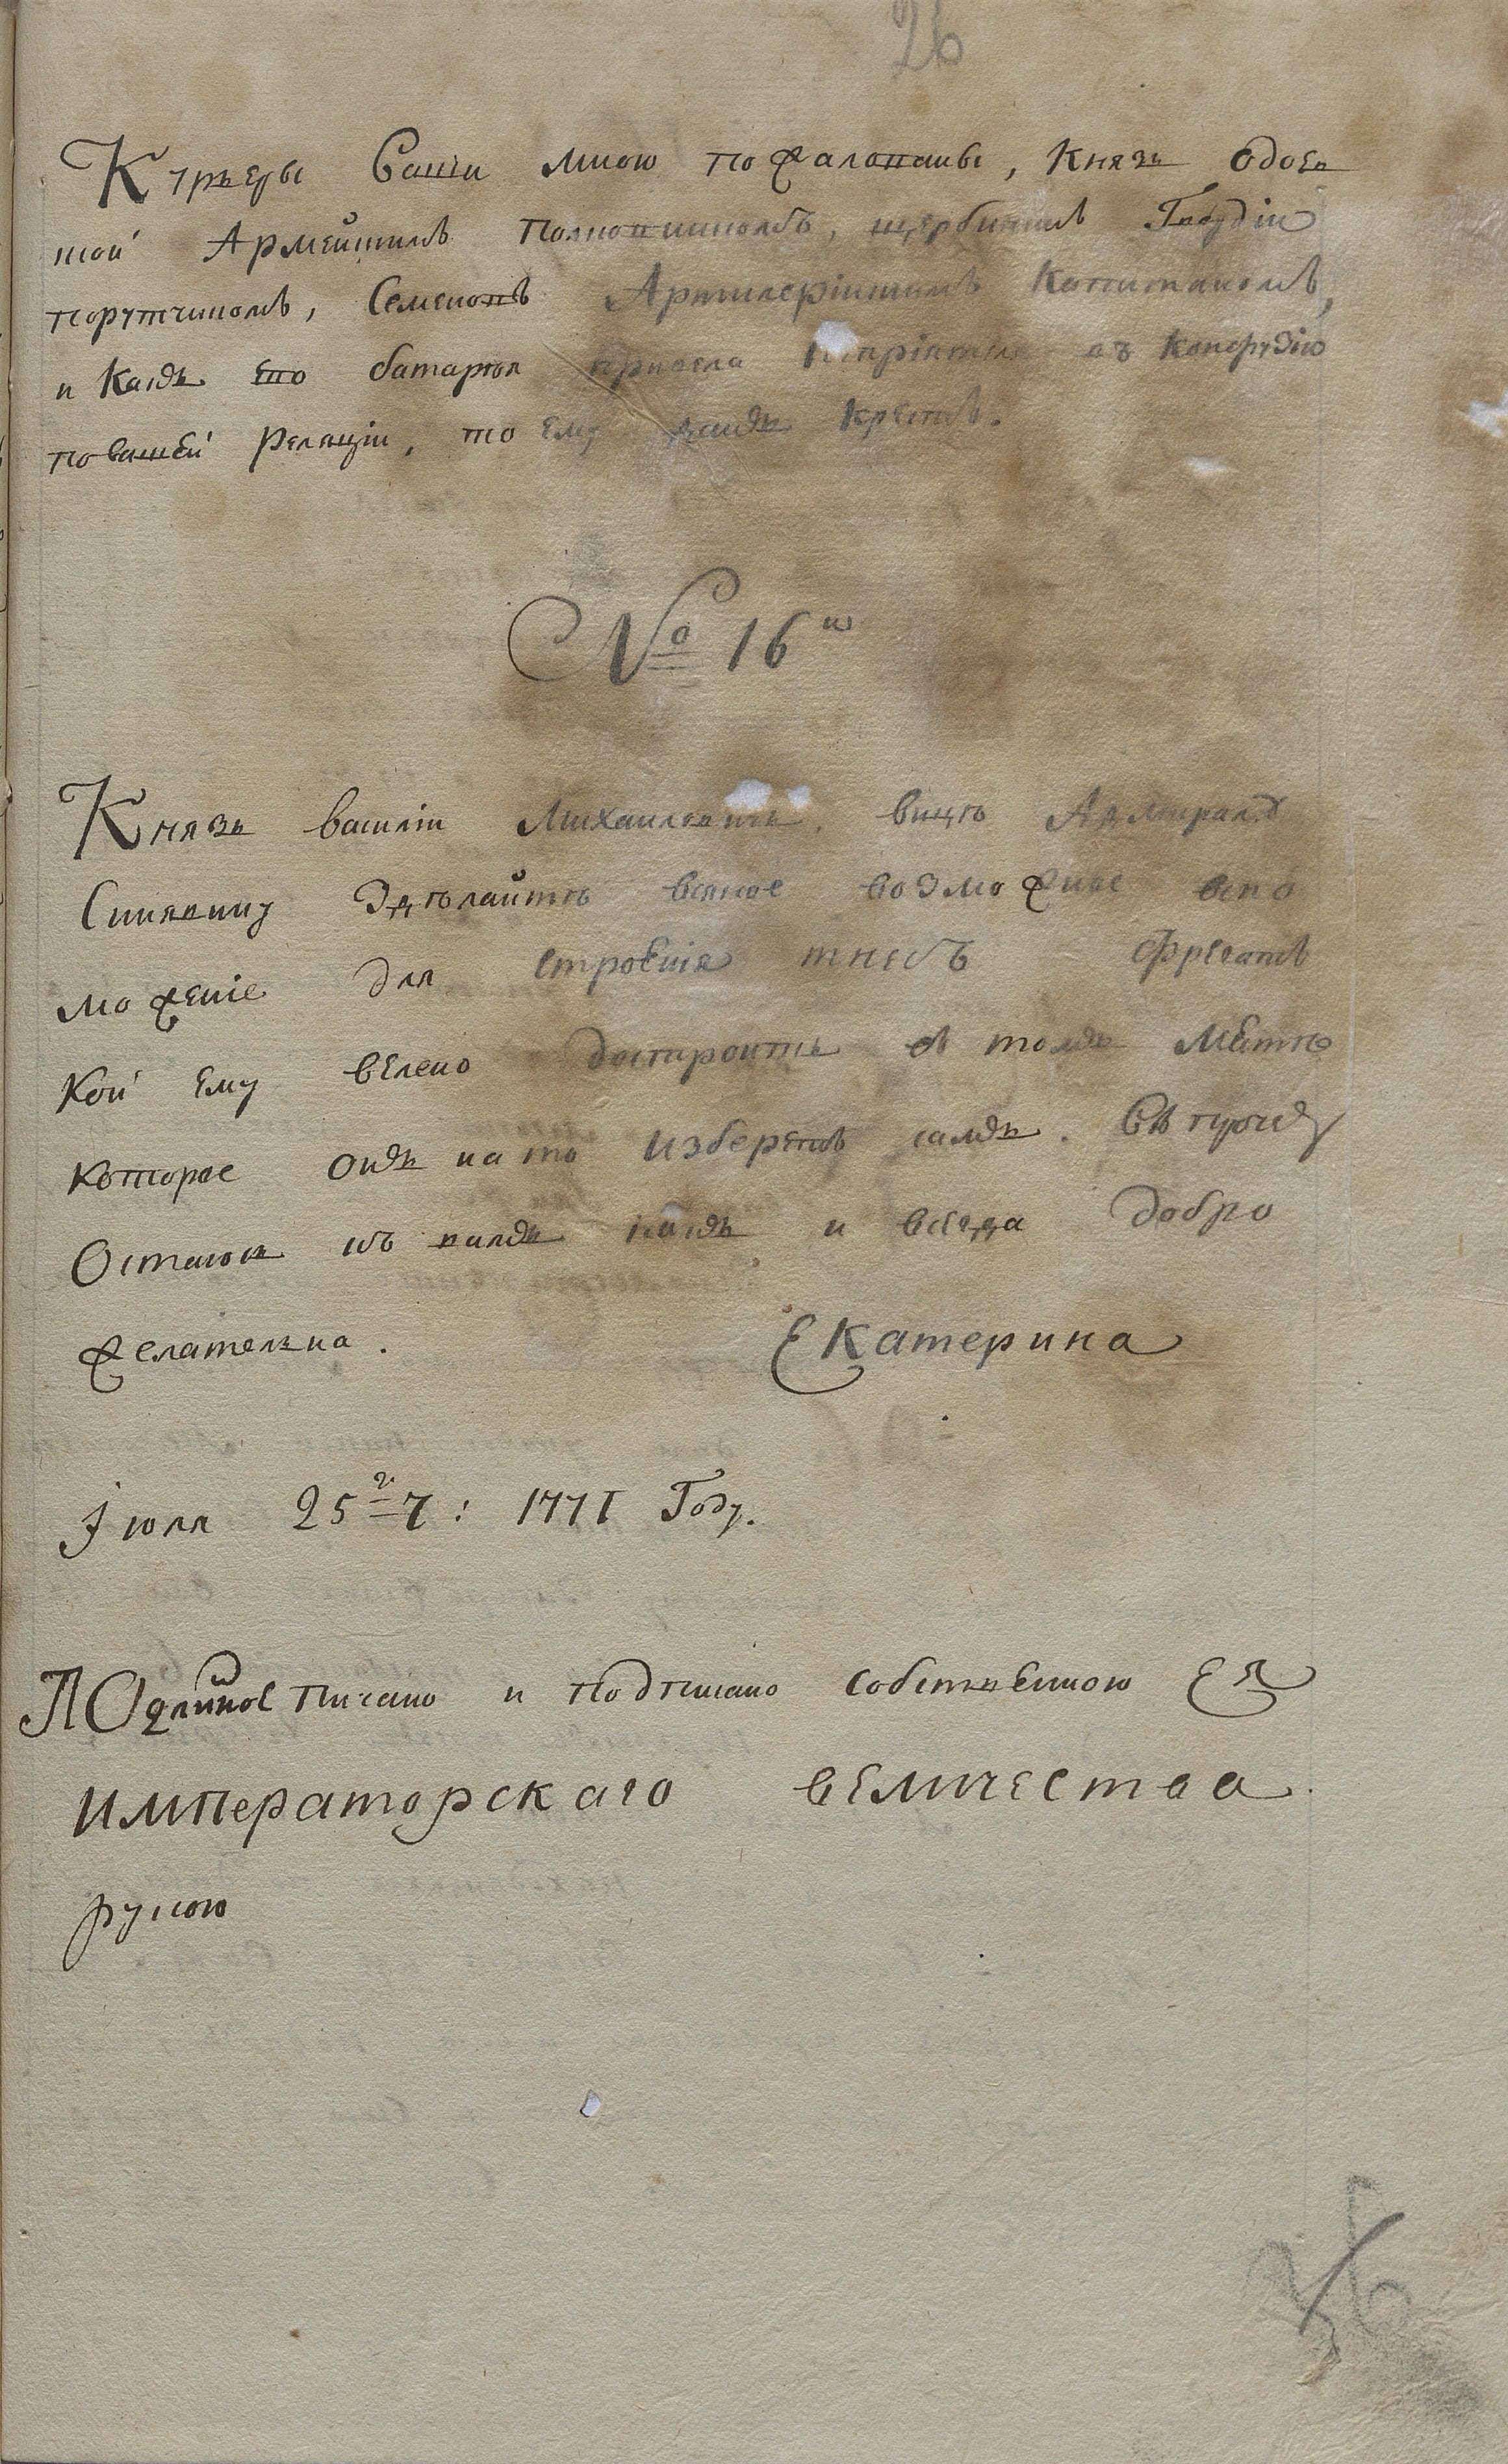 26
Курьеры Ваши мною пожалованы, Князь Одоев
ской Армейскимъ Полковникомъ, щербининъ Гвардiи
порутчикомъ, Семеновъ Артилерiйскимъ Капитаномъ,
и какъ его батарея привела непрiятеля въ Конфузiю
по вашей Реляцiи, то ему данъ Крестъ.
№ 16й
Князь василiи Михаиловичь. вице Адмиралу
Синявину Здѣлайте всякое возможное вспо
моженiе для строенiя тѣхъ Фрегатъ
кои ему велено достроить въ томъ Месте
которое онъ на то изберетъ самъ. Въ прочемъ
Остаюсь къ вамъ какъ и всегда добро
желательна. Екатерина
Iюля 25г 7: 1771 Году.
Подлинное писано и подписано собственною Ея
императорскаго величества
рукою
26